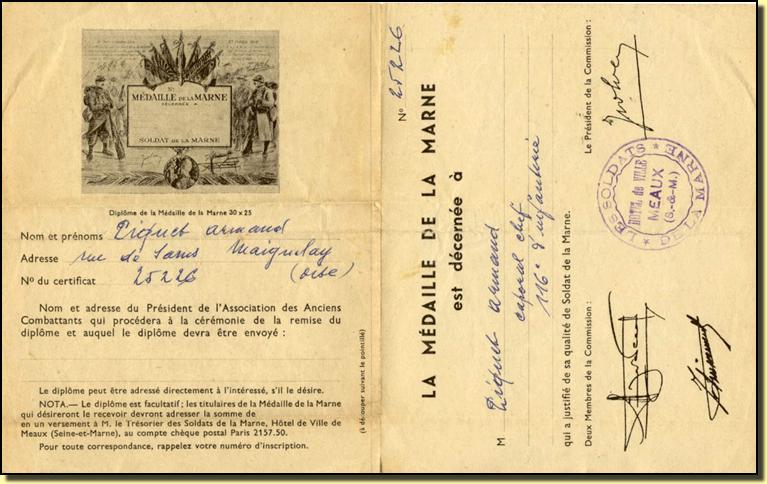 MÉDAILLE DE LA MARNE
DÉCERNÉE A
SOLDAT DE LA MARNE
Diplôme de la Médaille de la Marne 30 x 25
Nom et prénoms Piquet Armand
Adresse rue de Maignelay
(Oise)
Nº du certificat 25226
Nom et adresse du Président de l'Association des Anciens
Combattants qui procédera à la cérémonie de la remise du
diplôme et auquel le diplôme devra être envoyé :
Le diplôme peut être adressé directement à l'intéressé, s'il le désire.
NOTA.— Le diplôme est facultatif ; les titulaires de la Médaille de la Marne
qui désireront le recevoir devront adresser la somme de
en un versement à M. le Trésorier des Soldats de la Marne, Hôtel de Ville de
Meaux (Seine-et-Marne), au compte chèque postal Paris 2157.50.
Pour toute correspondance, rappelez votre numéro d'inscription.
(à découper suivant le pointillé)
Nº 25226
LA MÉDAILLE DE LA MARNE
est décernée à
M Piquet Armand
caporal chef
116e d'infanterie
qui a justifié de sa qualité de Soldat de la Marne.
Deux Membres de la Commission :
Le Président de la Commission :
LES SOLDATS
DE LA MARNE
HÔTEL de VILLE
MEAUX
(S.-&-M.)